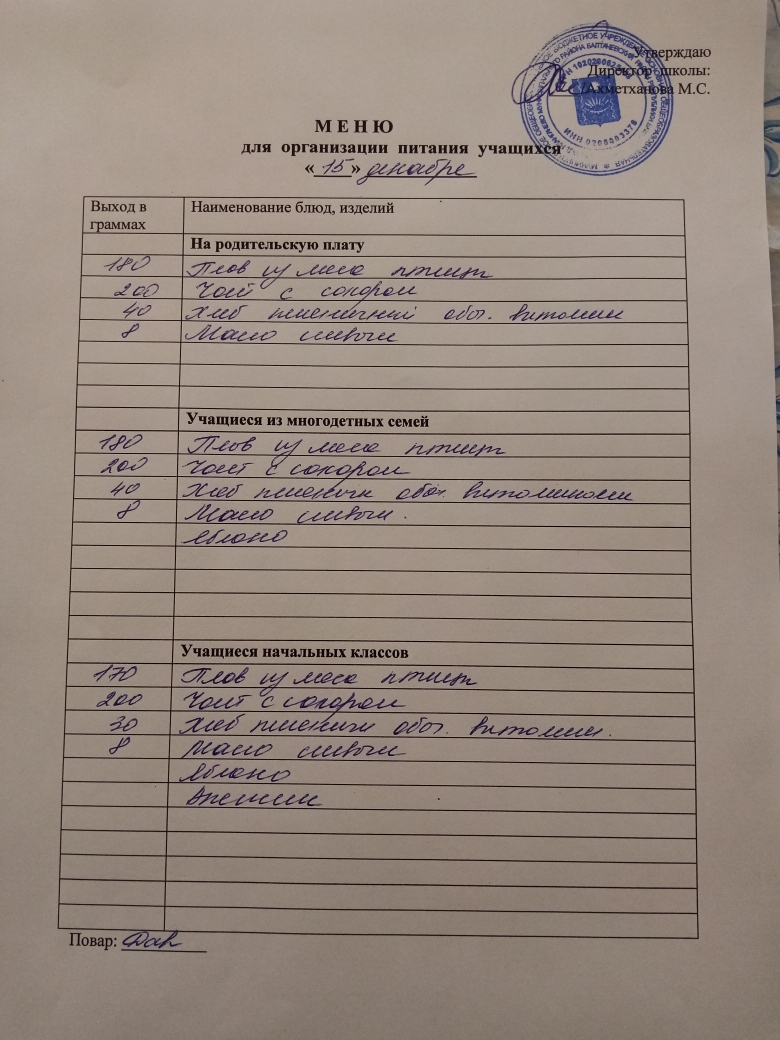 Утверждаю
Директор школы:
Ахметханова М.С.
ИНН 0208003378
М Е Н Ю
для организации питания учащихся
« 15 » декабря
Выход в граммах Наименование блюд, изделий
На родительскую плату
180 Плов из мяса птицы
200 Чай с сахаром
40 Хлеб пшеничный обог. витамин
8 Масло сливоч
Учащиеся из многодетных семей
180 Плов из мяса птицы
200 Чай с сахаром
40 Хлеб пшеничн обог. витаминами
8 Масло сливоч.
Яблоко
Учащиеся начальных классов
170 Плов из мяса птицы
200 Чай с сахаром
30 Хлеб пшеничн обог. витамин.
8 Масло сливочн
Яблоко
Апельсин
Повар: